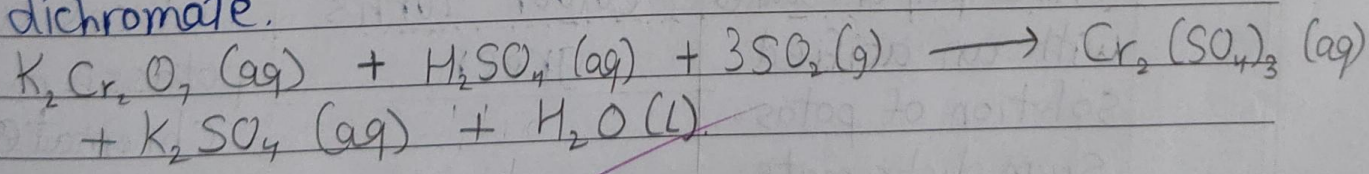 dichromate.
K₂Cr₂O₇ (aq) + H₂SO₄ (aq) + 3SO₂ (g) ⟶ Cr₂(SO₄)₃ (aq)
+ K₂SO₄ (aq) + H₂O (l)